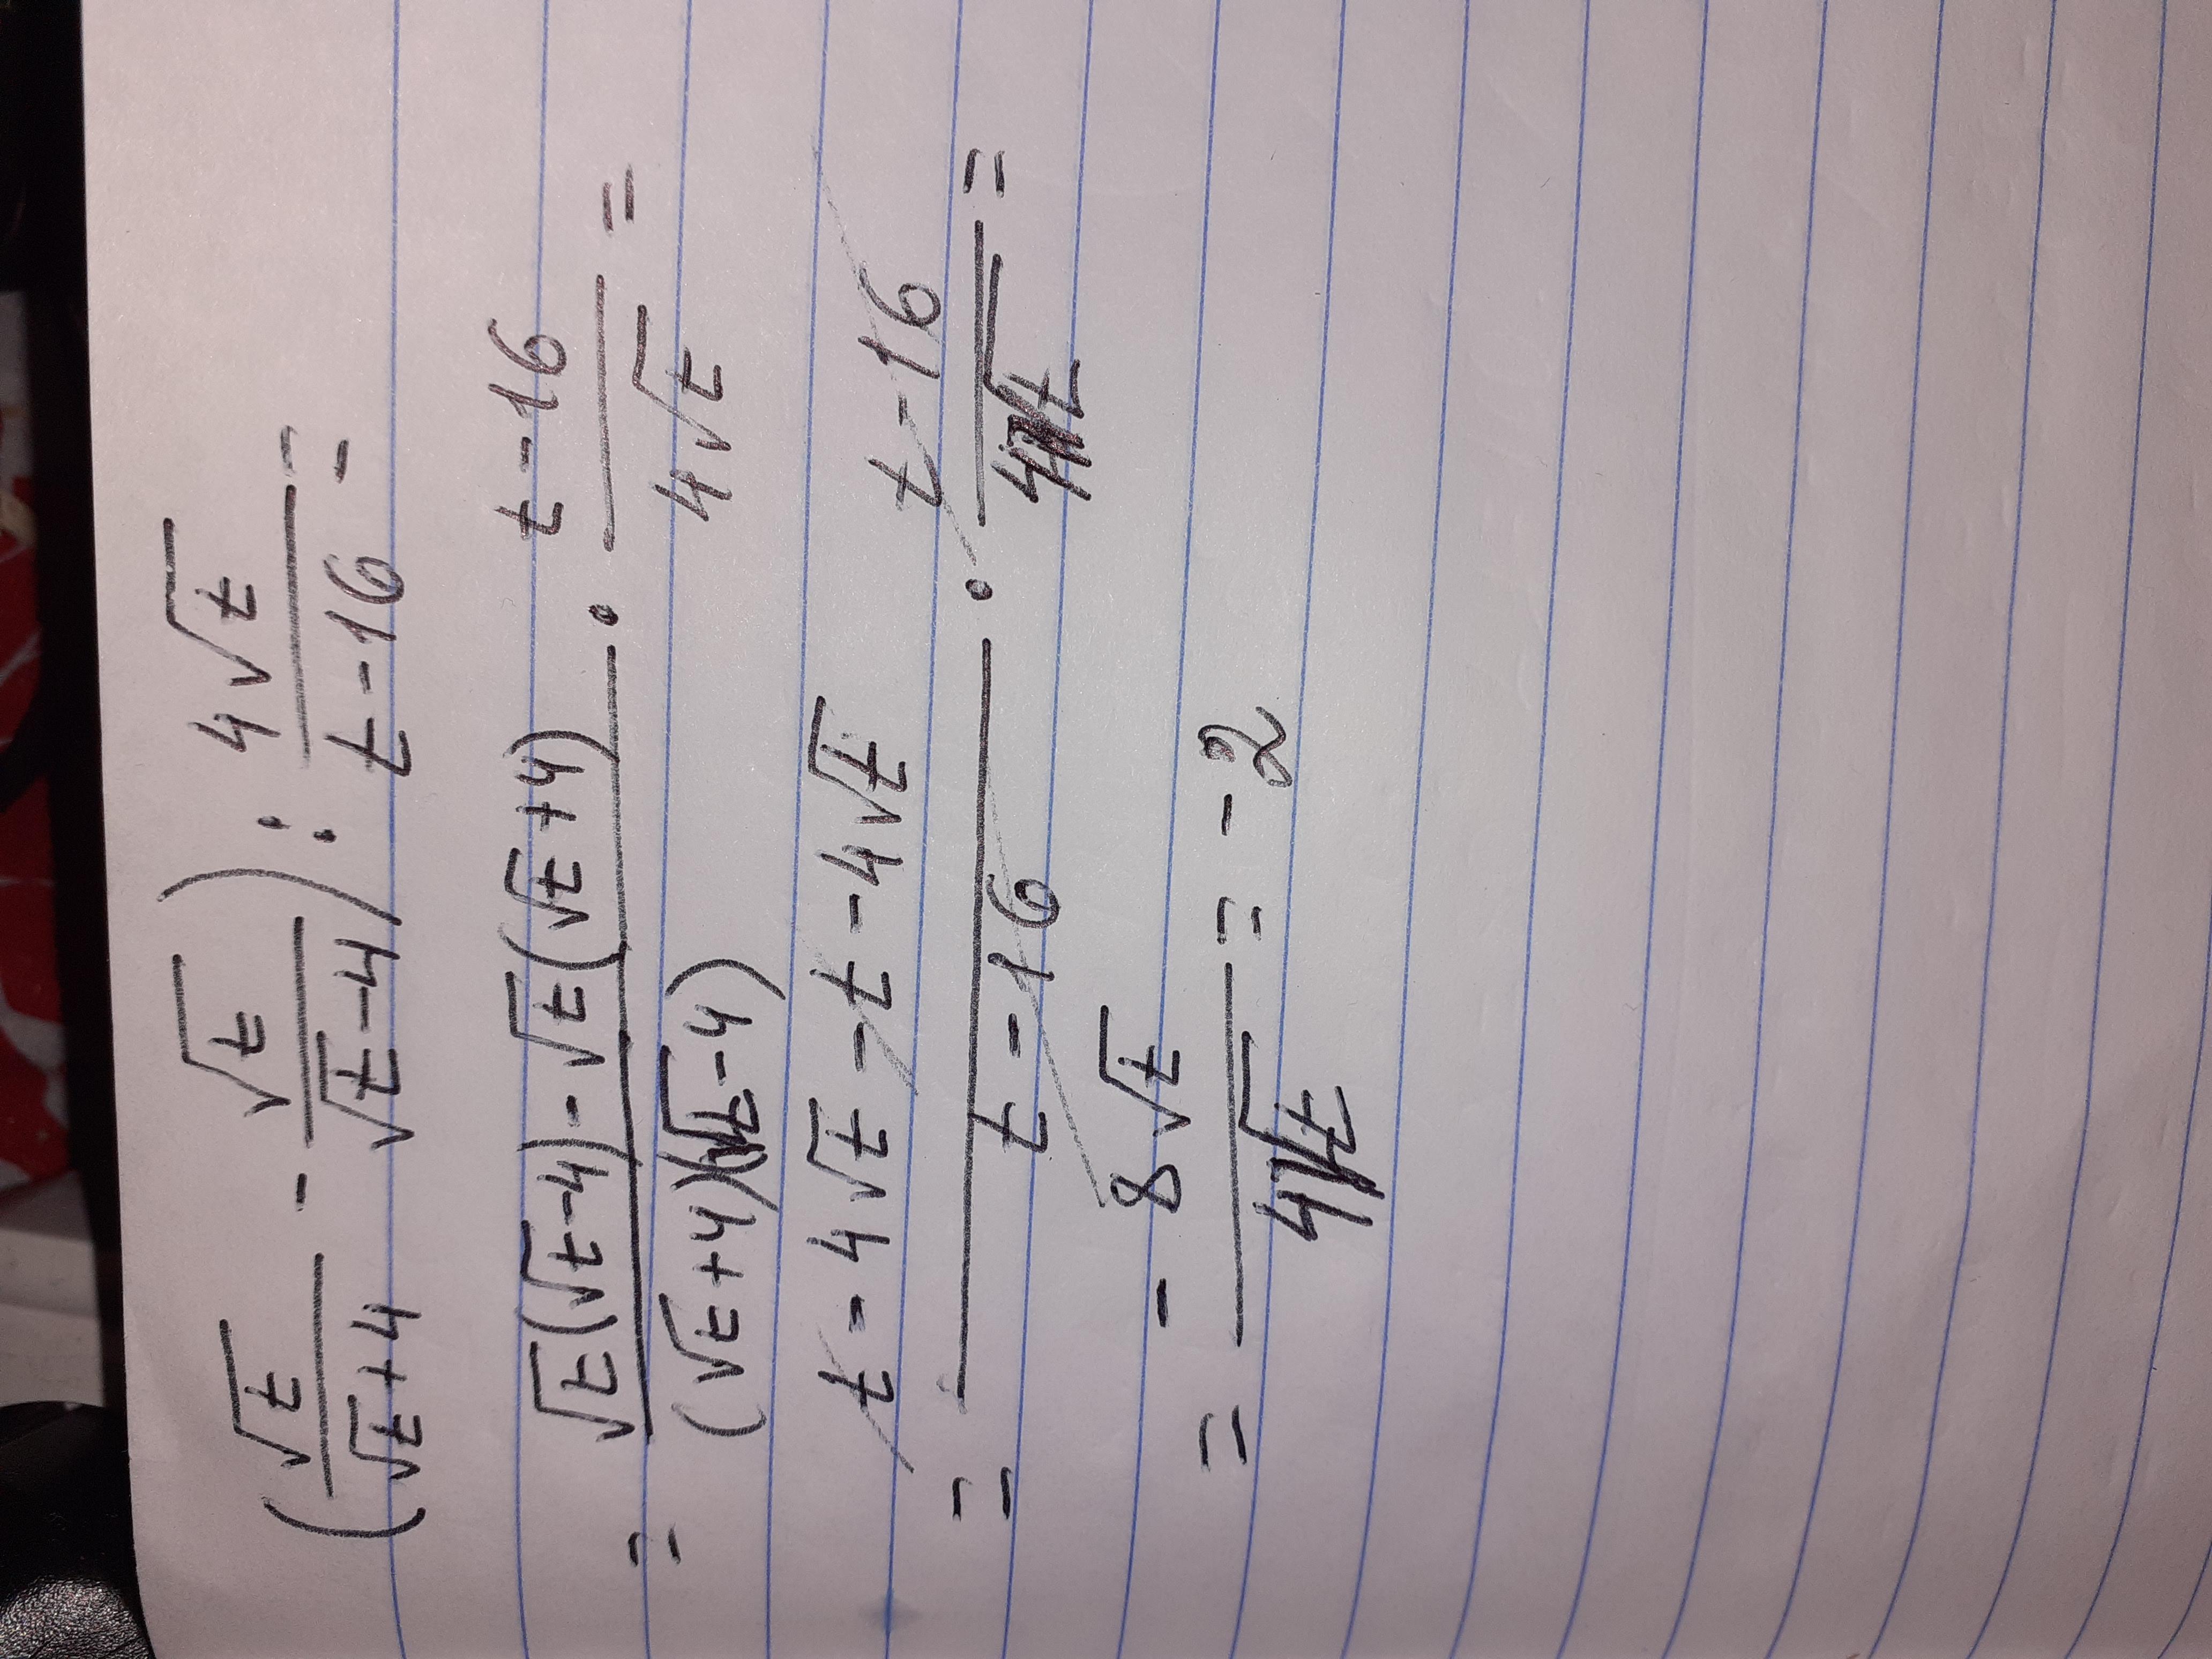 (√t/(√t+4) - √t/(√t-4)) : 4√t/(t-16) =
= (√t(√t-4) - √t(√t+4))/((√t+4)(√t-4)) · (t-16)/(4√t) =
= (t - 4√t - t - 4√t)/(t-16) · (t-16)/(4√t) =
= -8√t/(4√t) = -2